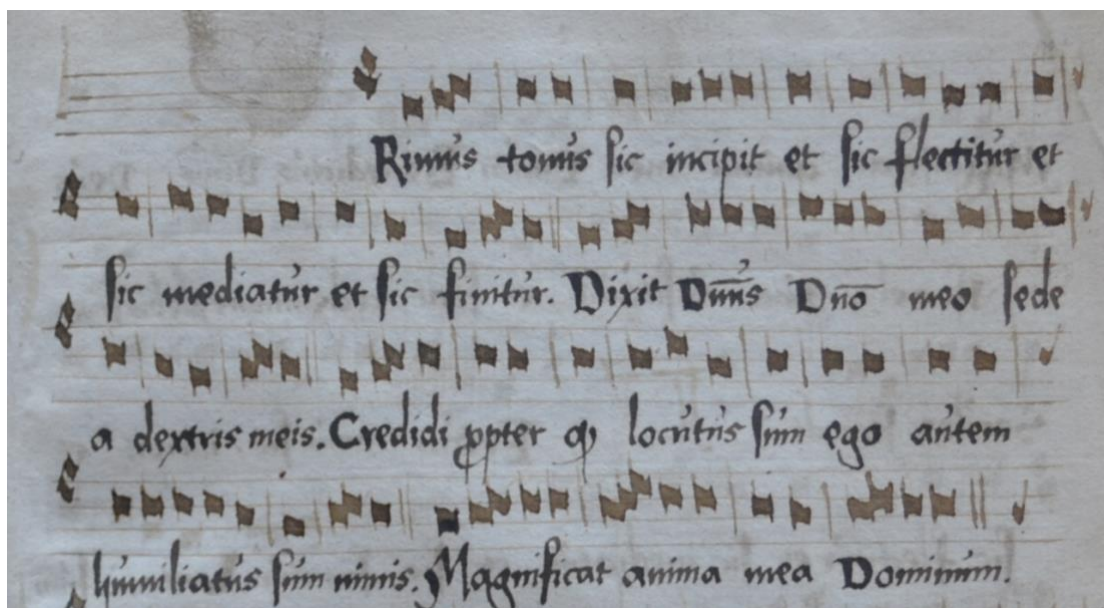 Rimus tonus sic incipit et sic flectitur et
sic mediatur et sic finitur. Dixit Dn̄us Dnō meo sede
a dextris meis. Credidi ꝓpter ꝙ locutus sum ego autem
humiliatus sum nimis. Magnificat anima mea Dominum.